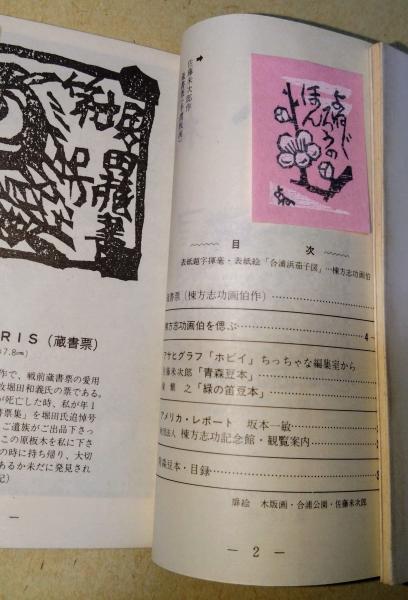 佐藤米次郎作
よねじ
ろうの
ほん
目次
表紙題字揮毫・表紙絵「合浦浜茄子図」…棟方志功画伯
蔵書票(棟方志功画伯作)
棟方志功画伯を偲ぶ 4
アサヒグラフ「ホビイ」ちっちゃな編集室から
佐藤米次郎「青森豆本」
蘭 繁之「緑の笛豆本」
アメリカ・レポート 坂本一敏
財団法人 棟方志功記念館・観覧案内
青森豆本・目録
扉絵 木版画・合浦公園・佐藤米次郎
— 2 —
RIS(蔵書票)
7.8㎝)
作で、戦前蔵書票の愛用
故堀田和義氏の票である。
が死亡した時、私が年1
書票集」を堀田氏追悼号
ご遺族がご出品下さっ
この原板木を私に下さ
の時に持ち帰り、大切
あるか未だに発見され
記)